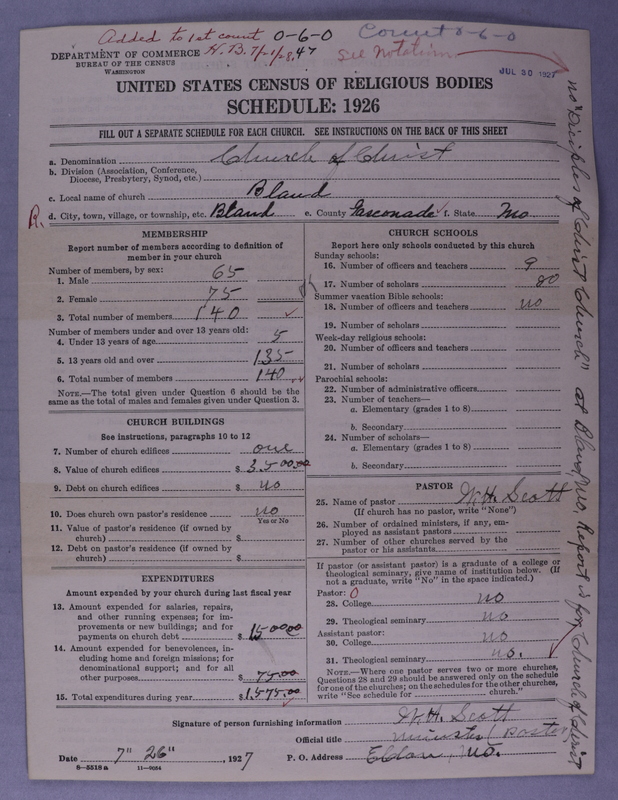 Added to 1st count 0-6-0 Count 0-6-0
H.B. 7/1/28, 47 See Notation
DEPARTMENT OF COMMERCE
BUREAU OF THE CENSUS
WASHINGTON
JUL 30 1927
UNITED STATES CENSUS OF RELIGIOUS BODIES
SCHEDULE: 1926
FILL OUT A SEPARATE SCHEDULE FOR EACH CHURCH. SEE INSTRUCTIONS ON THE BACK OF THIS SHEET
a. Denomination Church of Christ
b. Division (Association, Conference, Diocese, Presbytery, Synod, etc.)
c. Local name of church Bland
R. d. City, town, village, or township, etc. Bland e. County Gasconade f. State Mo
MEMBERSHIP
Report number of members according to definition of
member in your church
Number of members, by sex:
1. Male 65
2. Female 75
3. Total number of members 140
Number of members under and over 13 years old:
4. Under 13 years of age 5
5. 13 years old and over 135
6. Total number of members 140
NOTE.—The total given under Question 6 should be
same as the total of males and females given under Question 3.
CHURCH BUILDINGS
See instructions, paragraphs 10 to 12
7. Number of church edifices one
8. Value of church edifices $3500.00
9. Debt on church edifices $ no
10. Does church own pastor's residence? no
Yes or No
11. Value of pastor's residence (if owned by
church) $
12. Debt on pastor's residence (if owned by
church) $
EXPENDITURES
Amount expended by your church during last fiscal year
13. Amount expended for salaries, repairs,
and other running expenses; for im-
provements or new buildings; and for
payments on church debt $ 1500.00
14. Amount expended for benevolences, in-
cluding home and foreign missions; for
denominational support; and for all
other purposes $ 75.00
15. Total expenditures during year $1.575.00
CHURCH SCHOOLS
Report here only schools conducted by this church
Sunday schools:
16. Number of officers and teachers 9
17. Number of scholars 80
Summer vacation Bible schools:
18. Number of officers and teachers no
19. Number of scholars
Week-day religious schools:
20. Number of officers and teachers
21. Number of scholars
Parochial schools:
22. Number of administrative officers
23. Number of teachers—
a. Elementary (grades 1 to 8)
b. Secondary
24. Number of scholars—
a. Elementary (grades 1 to 8)
b. Secondary
PASTOR
25. Name of pastor W.H. Scott
(If church has no pastor, write "None")
26. Number of ordained ministers, if any, em-
ployed as assistant pastors
27. Number of other churches served by the
pastor or his assistants
If pastor (or assistant pastor) is a graduate of a college or
theological seminary, give name of institution below. (If
not a graduate, write "No" in the space indicated.)
Pastor: 0
28. College no
29. Theological seminary no
Assistant pastor:
30. College no
31. Theological seminary no.
NOTE.—Where one pastor serves two or more churches,
Questions 28 and 29 should be answered only on the schedule
for one of the churches; on the schedules for the other churches,
write "See schedule for church."
Signature of person furnishing information W.H. Scott
Official title minister / Pastor
Date 7" 26", 1927 P. O. Address Eldon, Mo.
8—5518a 11—9054
no "Disciples of Christ Church" at Bland, Mo. Report is for Church of Christ